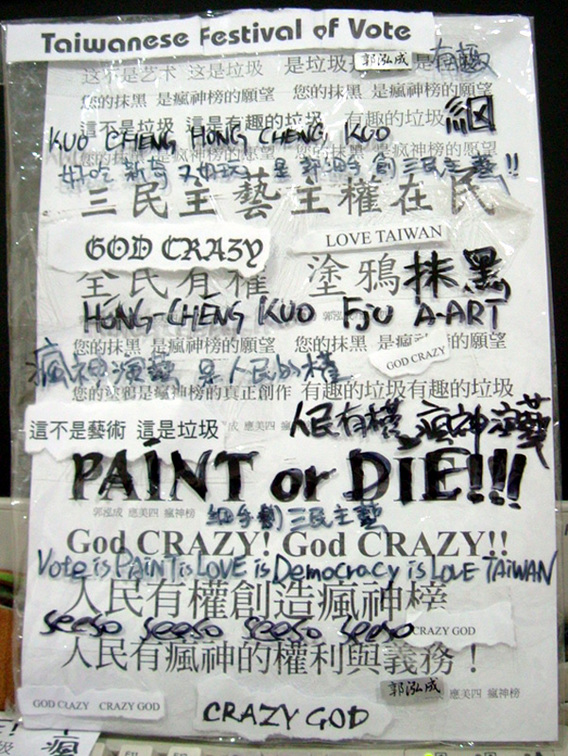 Taiwanese Festival of Vote
这不是艺术 这是垃圾 是垃圾 郭泓成 是有趣
您的抹黑 是瘋神榜的願望 您的抹黑 是瘋神榜的願望
這不是垃圾 這是有趣的垃圾 有趣的垃圾 細
KUO CHENG HONG CHENG KUO
您的抹黑 是疯神榜的愿望 您的抹黑 是疯神榜的愿望
是 郭細手創三民主藝!!
三民主藝主權在民
GOD CRAZY LOVE TAIWAN
全民有權 塗鴉抹黑
HONG-CHENG KUO FJU A-ART
您的抹黑 是瘋神榜的願望 您的抹黑 是瘋神榜的願望
GOD CRAZY
瘋神演藝 是人民的權
您的塗鴉是瘋神榜的真正創作 有趣的垃圾有趣的垃圾
這不是藝術 這是垃圾 人民有權 瘋神演藝
PAINT or DIE!!!
郭泓成 應美四 瘋神榜 細手創三民主藝
God CRAZY! God CRAZY!!
Vote is PAINT is LOVE is Democracy is LOVE TAIWAN
人民有權創造瘋神榜
seeso seeso seeso seeso CRAZY GOD
人民有瘋神的權利與義務！
郭泓成 應美四 瘋神榜
GOD CRAZY CRAZY GOD CRAZY GOD